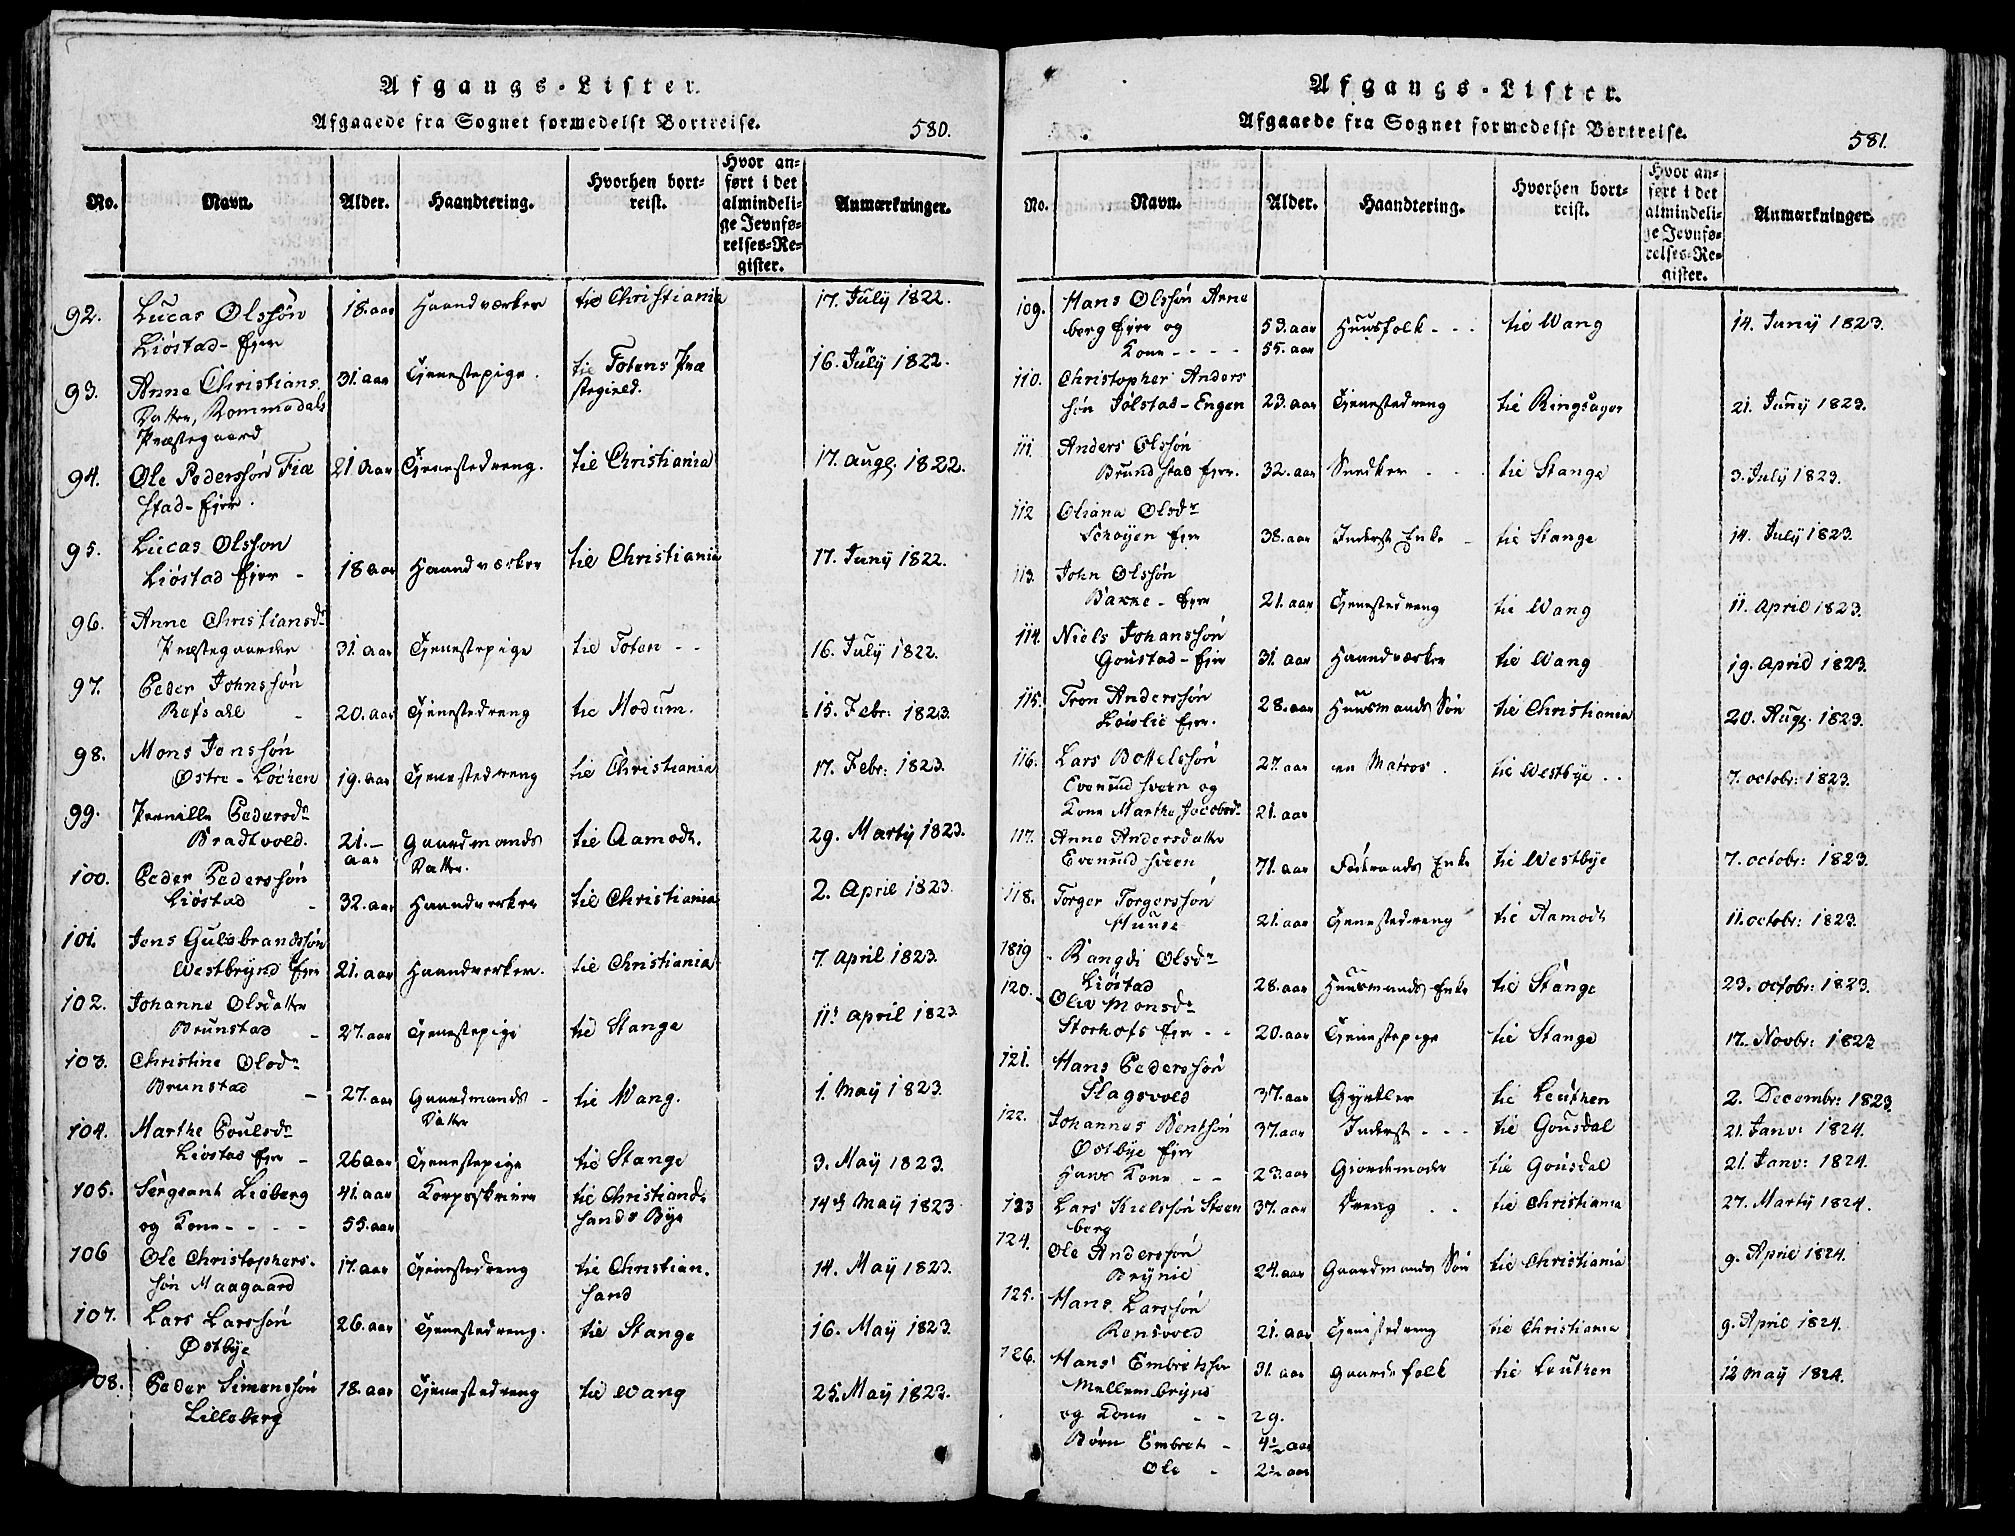 Afgangs-Lister.
Afgaaede fra Sognet formedelst Bortreise.
580.
No. Navn. Alder. Haandtering. Hvorhen bortreist. Hvor anført i det almindelige Jevnførelses-Register. Anmærkninger.
92. Lucas Olssön 18. aar Haandværker til Christiania 17. July 1822.
Liöstad-Eier
93. Anne Christians 31. aar Tjenestepige. til Totens Præ 16. July 1822.
Datter, Rommedals stegield.
Præstegaard
94. Ole Pederssön Fiæ 21 aar Tjenestedreng. til Christiania 17. augs. 1822.
stad-Eier.
95. Lucas Olsson
Liöstad Eier - 18 aar Haandværker til Christiania 17. Juny 1822.
96. Anne Christiansdr
Præstegaarden 31. aar Tjenestepige til Toten - - 16. July 1822.
97. Peder Johnssön
Rafsahl - 20. aar Tjenestedreng til Modum. 15. Febr: 1823.
98. Mons Jonssön
Østre-Löchen 19. aar Tjenestedreng til Christiania 17. Febr: 1823.
99. Pernille Pedersdr
Bradtvold. 21.- aar Gaardmands Datter. til Aamodt. 29. Marty 1823.
100. Peder Pederssön
Liöstad - 32. aar Haandverker til Christiania 2. April 1823.
101. Jens Gulbrandssön
Westbrynd Eier 21. aar Haandverker. til Christiania 7. April 1823.
102. Johanne Olsdatter
Brunstad - 27. aar Tjenestepige til Stange 11. april 1823
103. Christine Olsdr
Brunstad - 27. aar Gaardmands - Datter til Wang. 1. May 1823.
104. Marthe Poulsdr
Liöstad Eier - 26 aar Tjenestepige til Stange 3. May 1823.
105. Sergeant Lieberg 41. aar Korpeskriver til Christiand 14d May 1823
og Kone - - - - 55. aar sands Bye
106 Ole Christophers- 17. aar Tjenestedreng til Christian. 14. May 1823.
sön Maagaard sand
107. Lars Larssön 26. aar Tjenestedreng. til Stange 16. May 1823.
Østbye
108. Peder Simenssön 18. aar Tjenestedreng til Wang 25. May 1823.
Lilleberg
Afgangs-Lister.
Afgaaede fra Sognet formedelst Bortreise.
581.
No. Navn. Alder. Haandtering. Hvorhen bortreist. Hvor anført i det almindelige Jevnførelses-Register. Anmærkninger.
109. Hans Olssön Arne
berg Eier og 53. aar Huusfolk - - - til Wang 14. Juny 1823.
Kone - - - - 55. aar
110. Christopher Anders
sön Jölstad-Engen 23. aar Tjenestedreng til Ringsager 21. Juny 1823.
111. Anders Olssön
Brundstad Eier. 32. aar Snedker - - til Stange 3. July 1823.
112 Oliana Olsdr
Schöyen Eier 38. aar Inderst Enke - til Stange 14. July 1823.
113. John Olssön
Bakke-Eier 21. aar Tjenestedreng til Wang 11. April 1823.
114. Niels Johanssön
Goustad-Eier 31. aar Haandværker til Wang 19. April 1823.
115. Tron Anderssön 28. aar Huusmands Sön til Christiania 20. Augs. 1823.
Löislie Eier.
116. Lars Bottelssön 27. aar en Matros. til Westbye . . 7. octobr: 1823.
Evenrud Sveen og
Kone Marthe Jacobsdr 21. aar
117. Anne Andersdatter
Evenrud Sveen 71. aar Föderaads Enke til Westbye 7. octobr: 1823.
118. Torger Torgerssön
Huuse 21. aar Tjenestedreng til Aamodt 11. octobr: 1823.
1819 Rangdi Olsdr
Liöstad 28. aar Huusmands Enke til Stange 23. octobr: 1823.
120. Olea Monsdr
Storhofs Eier - - 20. aar Tjenestepige til Stange 17. Novbr: 1823
121. Hans Pederssön
Slagsvold 37. aar Gyrtler til Leuthen 2. Decembr: 1823.
122. Johannes Bentsön 37. aar Inderst - - - til Gousdal 21. Janv: 1824.
Østbye Eier
Hans Kone - - 23. aar Giordemoder til Gousdal 21. Janv: 1824.
123 Lars Kielssön Steen 37. aar Dreng . . til Christiania 27. Marty 1824.
berg
124. Ole Anderssön
Brynie 24. aar Gaardmands Sön til Christiania 9. April 1824.
125. Hans Larssön
Rensvold 21. aar Tjenestedreng til Christiania 9. April 1824.
126. Hans Embretssön 31. aar Gaardsfolk til Leuthen 12 May 1824.
Mellembrynd
og Kone - - 29.
Börn Embret - 4½ aar
Ole - 2½ aar